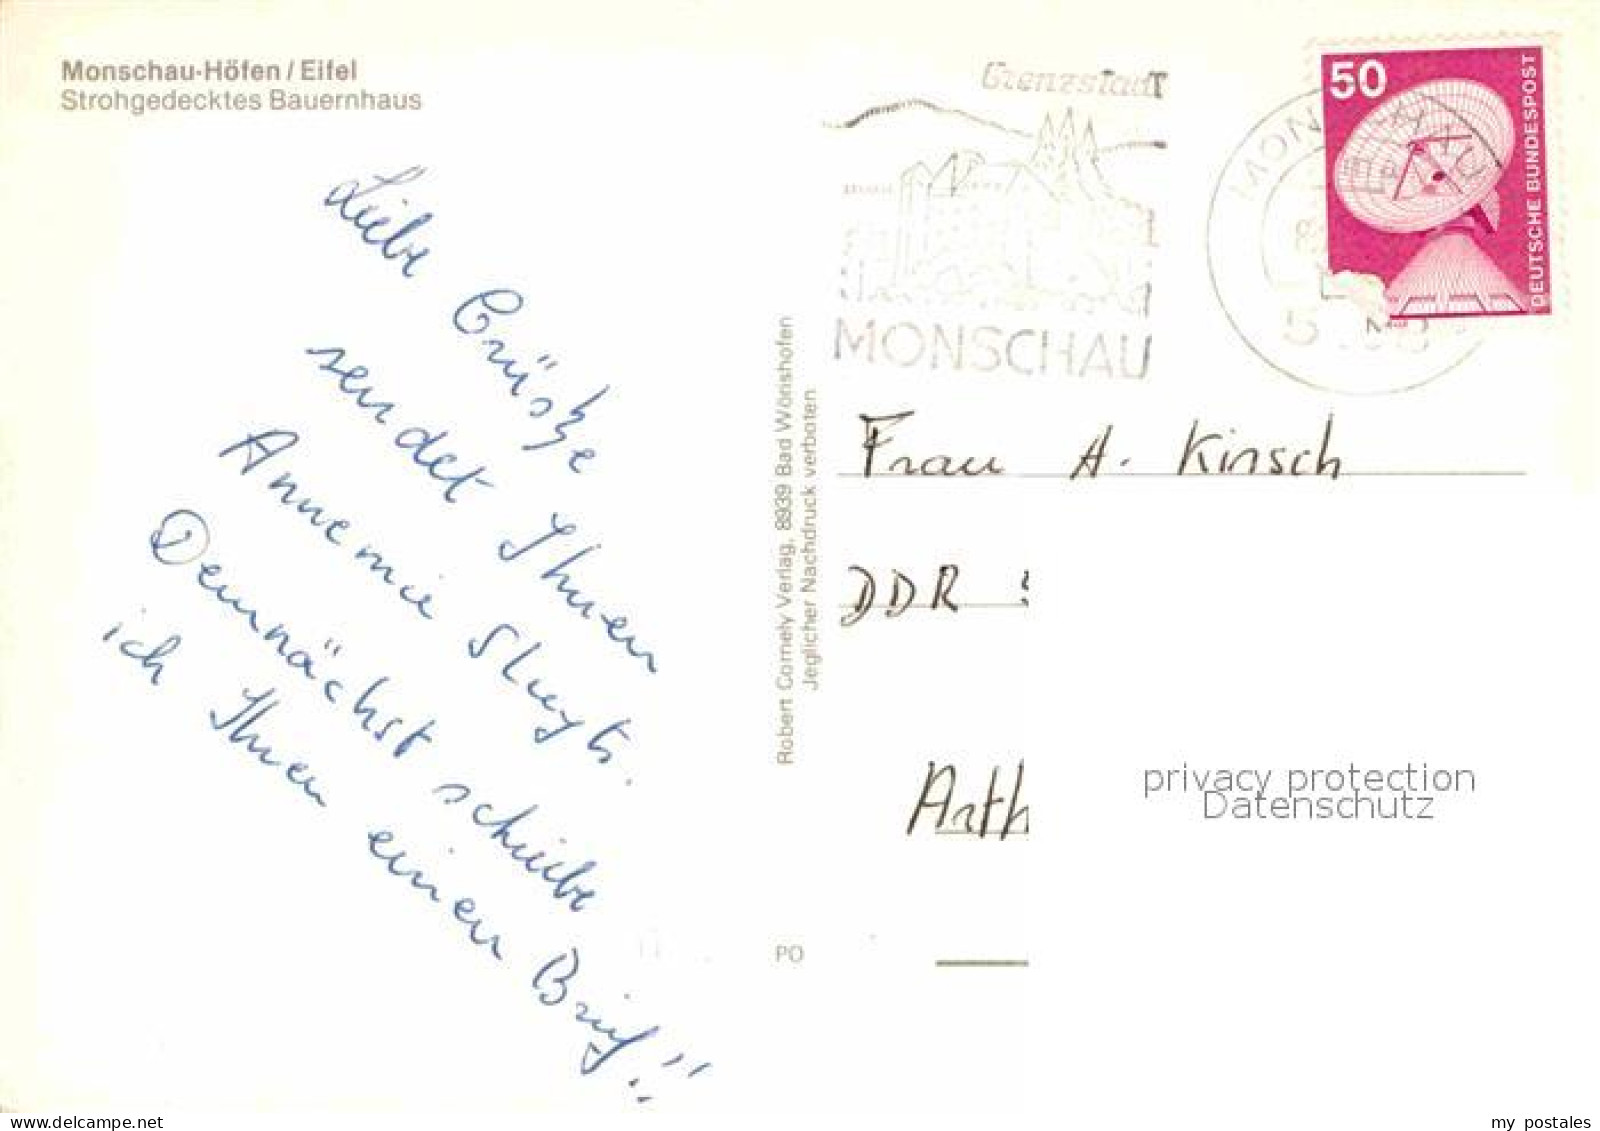 Monschau-Höfen / Eifel
Strohgedecktes Bauernhaus
Liebe Grüße
sendet Ihnen
Annemie Sluyts.
Demnächst schreibe
ich Ihnen einen Brief!!
Robert Cornely Verlag, 8939 Bad Wörishofen
Jeglicher Nachdruck verboten
PO
Grenzstadt
MONSCHAU
50
DEUTSCHE BUNDESPOST
Frau A. Kirsch
DDR
Arth
privacy protection
Datenschutz
www.delcampe.net
my_postales